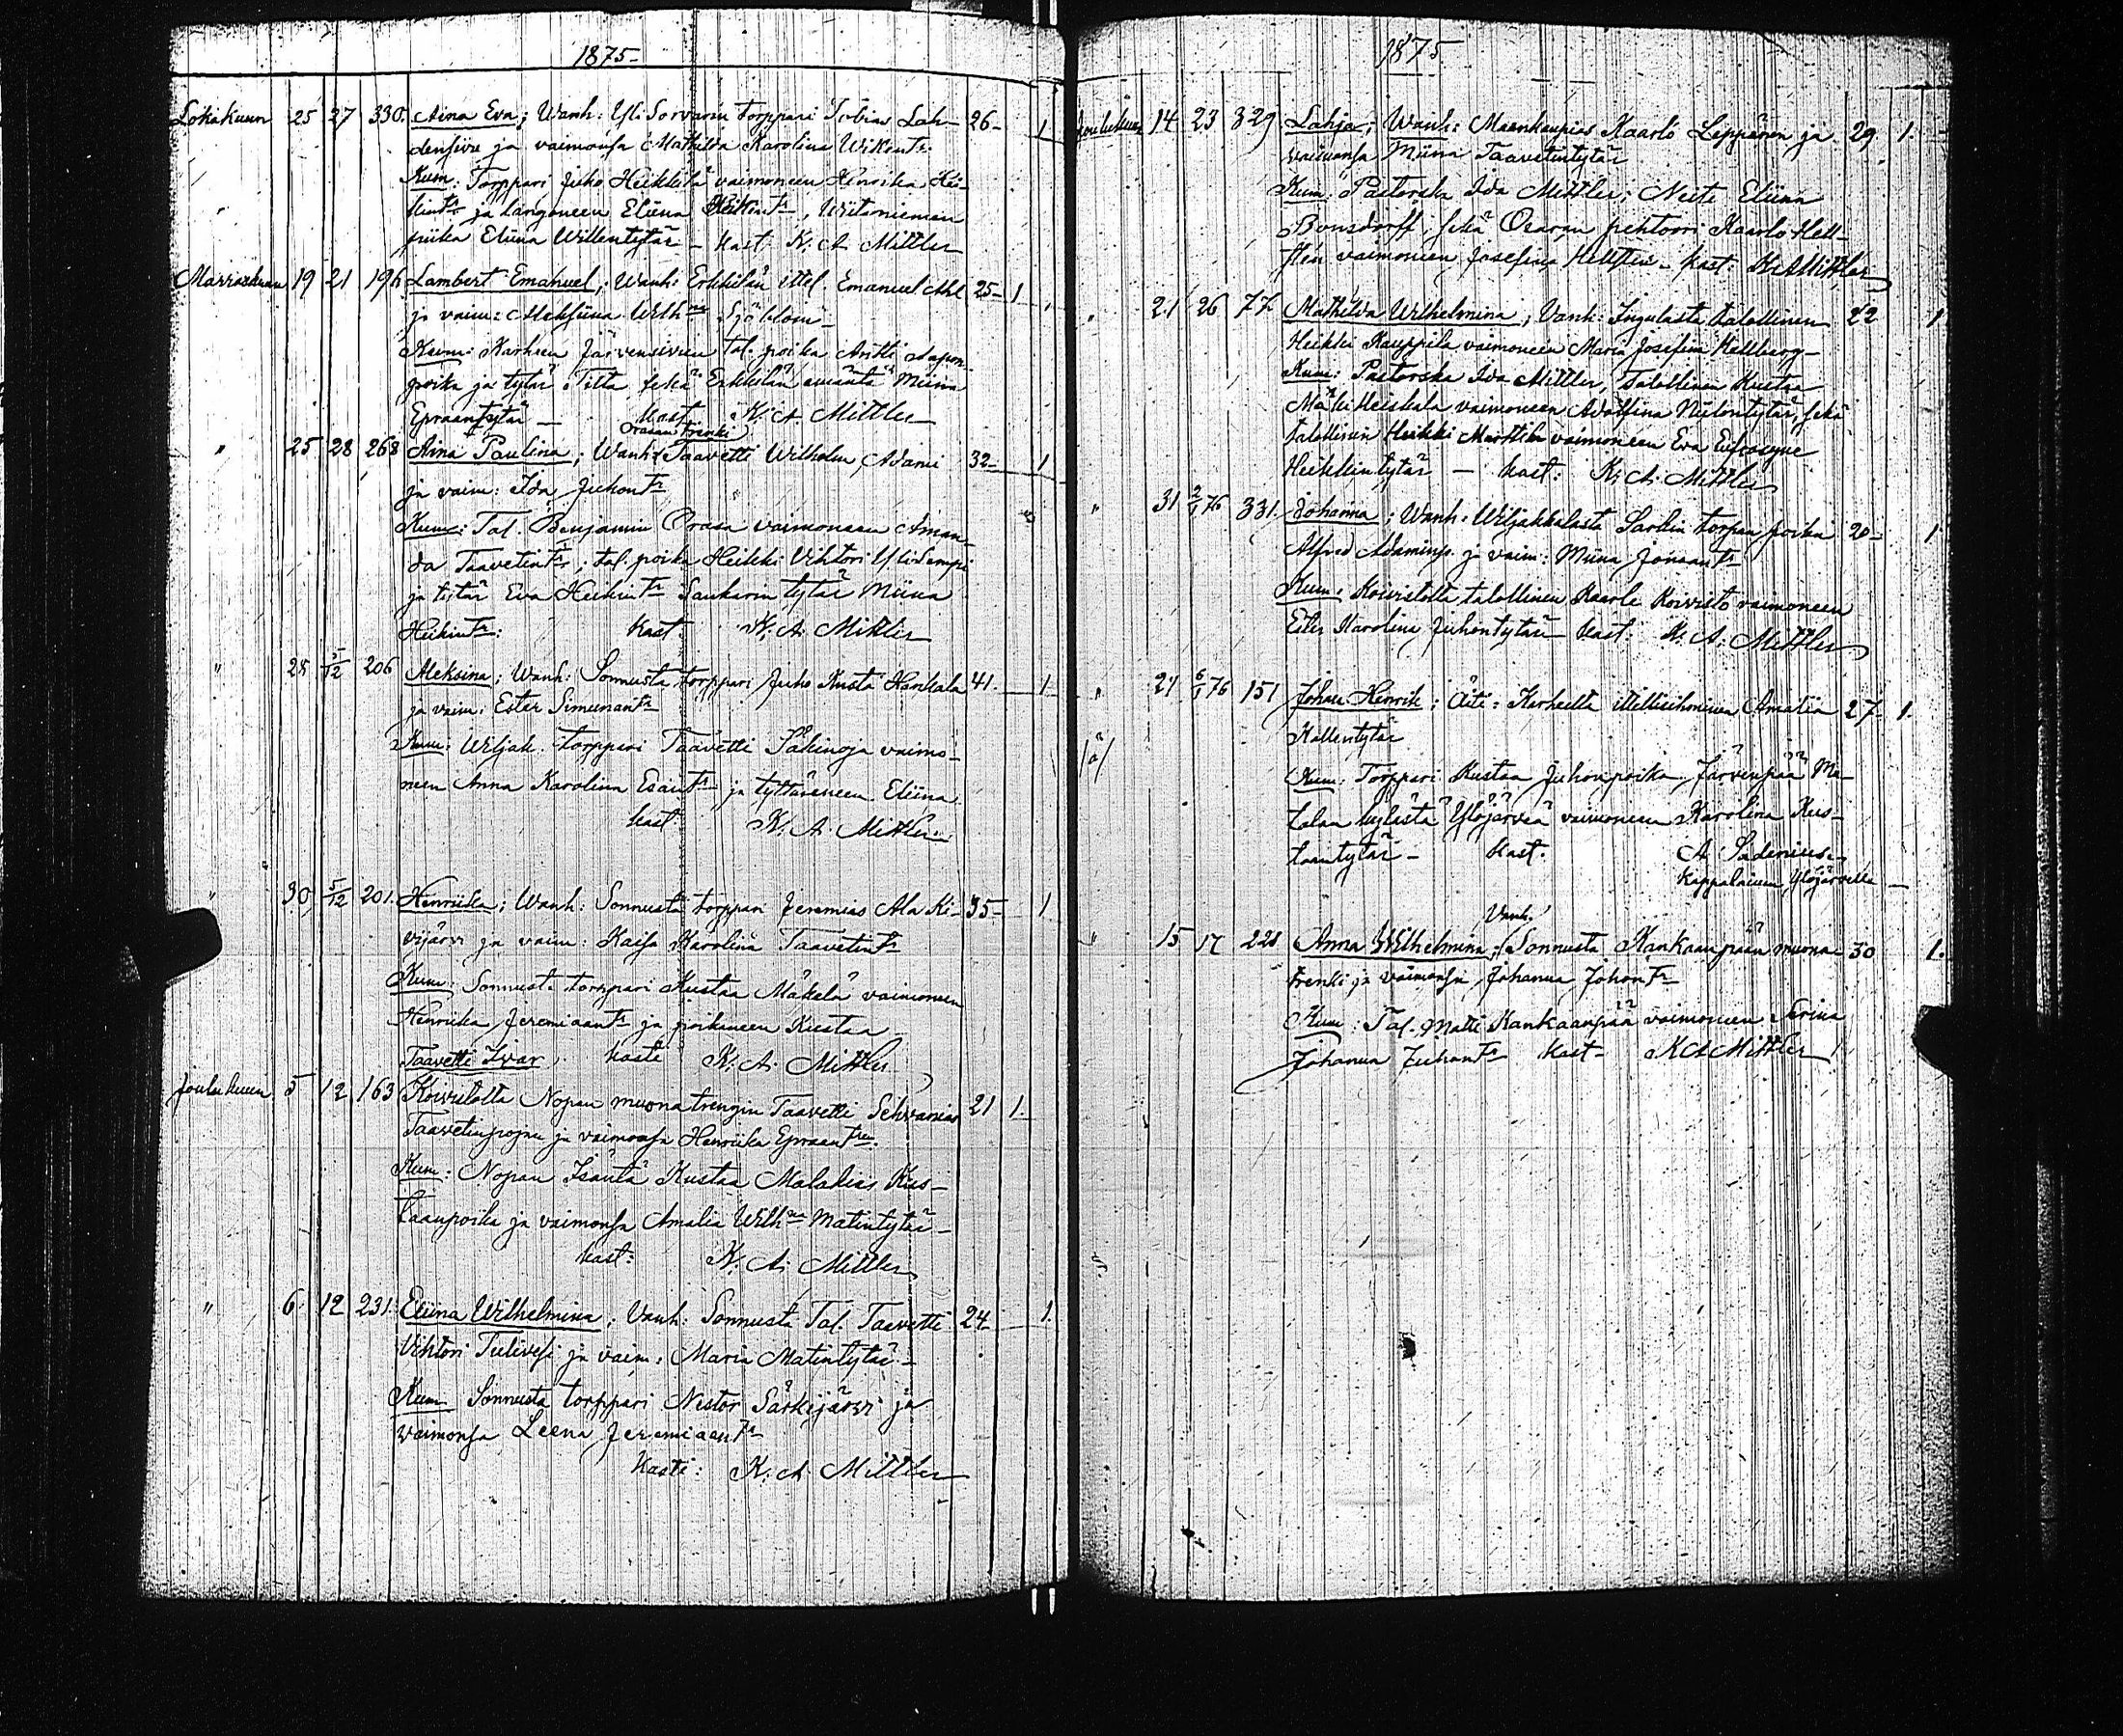 1875
Lokakuun 25 27 330. Aina Eva; Wanh: Yli Sorvarin torppari Tobias Lah- 26- 1
densivu ja vaimonsa Mathilda Karolina Wikint:
Kum: Torppari Juho Heikkilä vaimoneen Henrika Hei-
kint: ja langoneen Eliina Heikint:, Wiitaniemen
piika Eliina Willentytär - kast: K. A. Mittler
Marraskuun 19 21 196 Lambert Emanuel; Wanh: Erkkilän ittel. Emanuel Ahl 25- 1
ja vaim: Maksiina Wilh:na Sjöblom-
Kum: Karheen Järvensivun tal. poika Antti Aapon-
poika ja tytär Tilta sekä Erkkilän emäntä Miina
Epraantytär — kast K. A. Mittler
Orasan Trenki
" 25 28 268 Aina Paulina; Wanh: Taavetti Wilhelm Adami 32- 1
ja vaim: Ida Juhontr
Kum: Tal. Benjamin Orasa vaimoneen Aman-
da Taavetintr; tal. poika Heikki Vihtori Yli Sempi
ja tytär Eva Heikintr Saukarin tytär Miina
Heikintr: kast: K. A. Mittler
" 28 5/12 206 Aleksina; Wanh: Sonnusta torppari Juho Kusta Hankala 41. 1
ja vaim: Ester Simunantr
Kum: Wiljak. torppari Taavetti Säkinoja vaimo-
neen Anna Karolina Esaintr ja tyttäreneen Eliina
kast: K. A. Mittler
" 30 5/12 201. Henriika; Wanh: Sonnusta torppari Jeremias Ala Ki- 35- 1
vijärvi ja vaim: Kaisa Karolina Taavetintr
Kum: Sonnusta torppari Kustaa Mäkelä vaimoneen
Henriika Jeremiaantr ja poikaneen Kustaa
Taavetti Ivar. kaste K. A. Mittler
Joulukuun 5 12 163 Koivistolta Nopan muonatrengin Taavetti Sehvanias 21 1
Taavetinpojan ja vaimonsa Henriika Epraantren.
Kum: Nopan Isäntä Kustaa Malakias Kus-
taanpoika ja vaimonsa Amalia Wilh:na Matintytär-
kast: K. A. Mittler
" 6 12 231. Eliina Wilhelmina; Vanh: Sonnusta Tal. Taavetti 24- 1.
Vihtori Tulivesi ja vaim: Maria Matintytär-
Kum Sonnusta torppari Nestor Särkijärvi ja
vaimonsa Leena Jeremiaantr
kasti: K. A. Mittler
1875
Joulukuun 14 23 329 Lahja; Wanh: Maankaupias Kaarlo Leppänen ja 29 1.
vaimonsa Miina Taavetintytär
Kum: Pastorska Ida Mittler; Neiti Eliina
Bonsdorff, sekä Osaran pehtoori Kaarlo Hell-
stén vaimoneen Josefina Hellstén - kast: K A Mittler
" 21 26 77 Mathilda Wilhelmina; Vanh: Ingulasta talollinen 22 1
Heikki Kauppila vaimoneen Maria Josefina Hellberg-
Kum: Pastorska Ida Mittler, Talollinen Kustaa
Mäki Heiskala vaimoneen Adolfina Niilontytär, sekä
talollinen Heikki Marttila vaimoneen Eva Eufrosyne
Heikkintytär — kast: K. A. Mittler
" 31 2/1 76 331. Johanna; Wanh: Wiljakkalasta Sarkin torpan poika 20- 1
Alfred Adaminp. ja vaim: Miina Jonaantr
Kum: Koivistolta talollinen Kaarle Koivisto vaimoneen
Ester Karolina Juhontytär kast: K. A. Mittler
" 21 6/1 76 151 Johan Henrik; Äiti: Karheelta itellisihminen Amalia 27- 1.
Kallentytär
/ä/
Kum: Torppari Kustaa Juhonpoika Järvenpää Ma-
talan kylästä Ylöjärveä vaimoneen Karolina Kus-
taantytär - kast. A Sadenius
Kappalainen Ylöjärvellä —
Vanh.
" 15 17 228 Anna Wilhelmina; Sonnusta Kankaanpään muona- 30 1.
trenki ja vaimonsa Johanna Johantr
Kum: Tal. Matti Kankaanpää vaimoneen Serina
Johanna Juhantr kast- K A Mittler